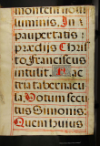 montem hom
luminis. In
paupertatis
prædijs Chris
to Franciscus
intulit.
tru tabernacu
la Votum secu
tus Simonis.
Quem huius